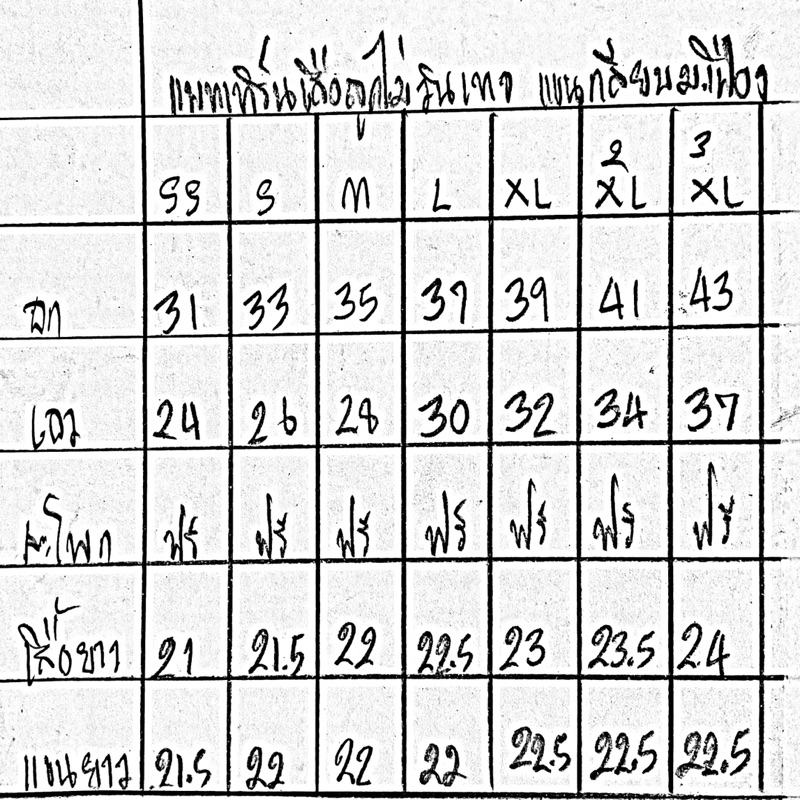 แพทเทิร์นเสื้อลูกไม้วินเทจ แขนกลีบมะเฟือง
SS S M L XL 2XL 3XL
อก 31 33 35 37 39 41 43
เอว 24 26 28 30 32 34 37
ส.โพก ฟรี ฟรี ฟรี ฟรี ฟรี ฟรี ฟรี
เสื้อยาว 21 21.5 22 22.5 23 23.5 24
แขนยาว 21.5 22 22 22 22.5 22.5 22.5